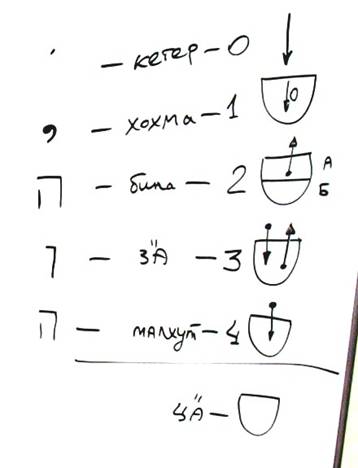 ' – кетер – 0
, – хохма – 1 0
П – бина – 2 А Б
ר – З"А – 3
П – малхут – 4
ц"А –